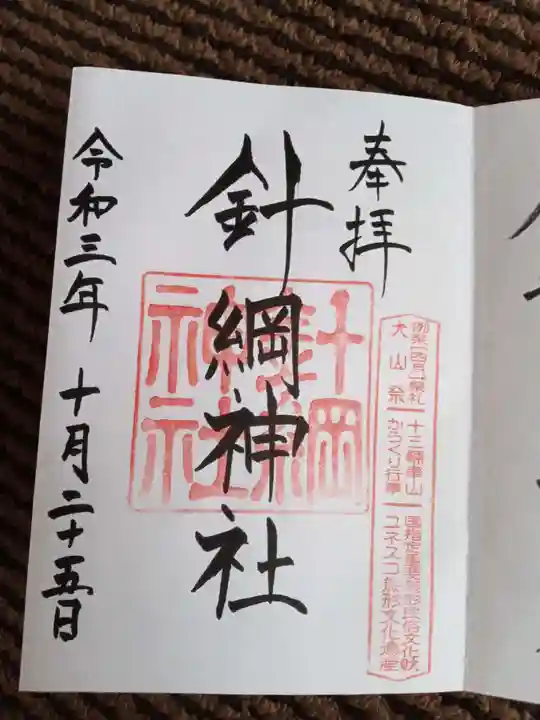 奉拝
針綱神社
針綱神社
例祭(四月)祭礼
犬山祭
十三輌車山
からくり行事
国指定重要無形民俗文化財
ユネスコ無形文化遺産
令和三年 十月二十五日